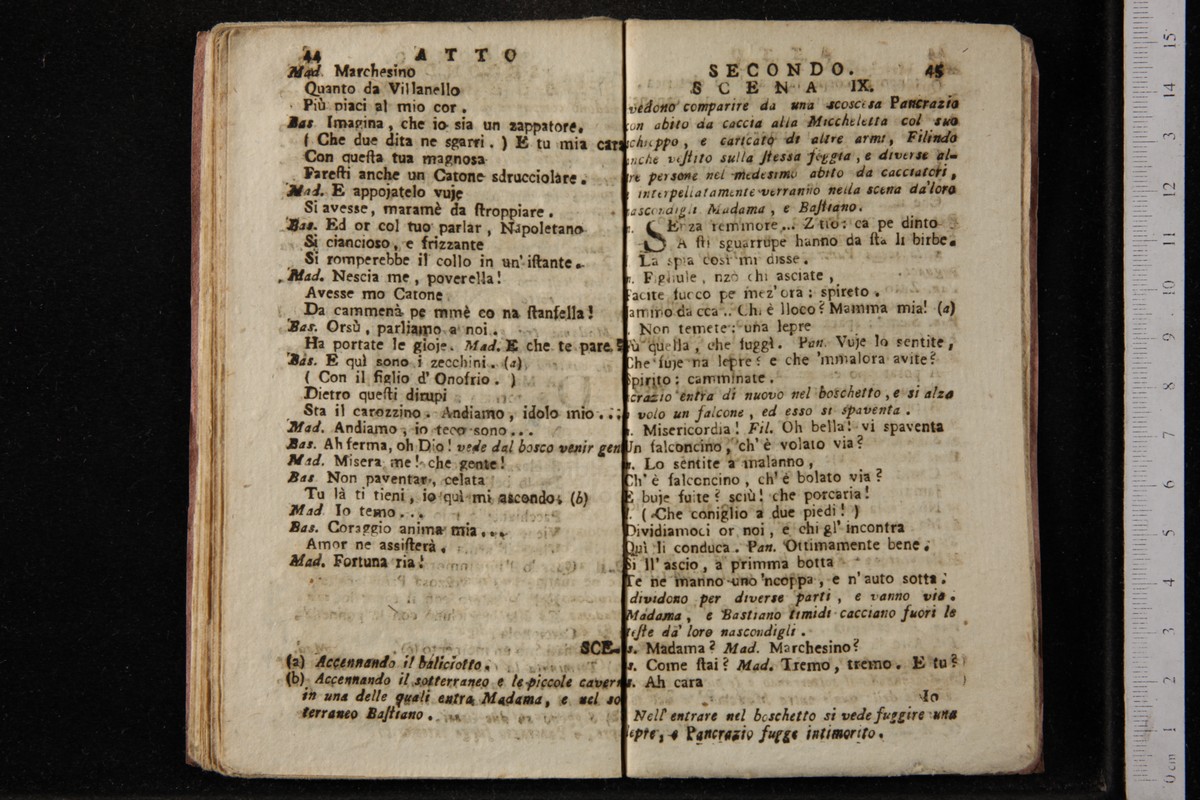 44 ATTO
Mad. Marchesino
Quanto da Villanello
Più piaci al mio cor.
Bas Imagina, che io sia un zappatore.
( Che due dita ne sgarri. ) E tu mia cara
Con queſta tua magnosa
Fareſti anche un Catone sdrucciolare.
Mad. E appojatelo vuje
Si avesse, maramè da ſtroppiare.
Bas. Ed or col tuo parlar, Napoletano
Si ciancioso, e frizzante
Si romperebbe il collo in un' iſtante.
Mad. Nescia me, poverella!
Avesse mo Catone
Da cammenà pe mmè co na ſtanfella!
Bas. Orsù, parliamo a noi.
Ha portate le gioje. Mad. E che te pare?
Bas. E quì sono i zecchini. (a)
( Con il figlio d' Onofrio. )
Dietro queſti dirupi
Sta il carozzino. Andiamo, idolo mio...
Mad. Andiamo, io teco sono...
Bas. Ah ferma, oh Dio! vede dal bosco venir gen
Mad. Misera me! che gente!
Bas Non paventar, celata
Tu là ti tieni, io quì mi ascondo. (b)
Mad Io temo...
Bas. Coraggio anima mia...
Amor ne assiſterà.
Mad. Fortuna ria!
SCE-
(a) Accennando il baliciotto.
(b) Accennando il sotterraneo e le piccole cavern
in una delle quali entra Madama, e nel so
terraneo Baſtiano.
SECONDO. 45
SCENA IX.
vedono comparire da una scoscesa Pancrazio
con abito da caccia alla Miccheletta col suo
schiuppo, e caricato di altre armi, Filindo
anche veſtito sulla ſtessa foggia, e diverse al-
tre persone nel medesimo abito da cacciatori,
interpellatamente verranno nella scena da'loro
nascondigli Madama, e Baſtiano.
SEnza remmore... Zitto: ca pe dinto
A ſti sguarrupe hanno da ſta li birbe.
La spia così mi disse.
Figliule, nzò chi asciate,
Facite fuoco pe mez' ora: spireto.
Jammo da cca.. Chi è lloco? Mamma mia! (a)
Non temete: una lepre
Fù quella, che fuggì. Pan. Vuje lo sentite,
Che fuje na lepre? e che 'mmalora avite?
Spirito: camminate.
crazio entra di nuovo nel boschetto, e si alza
volo un falcone, ed esso si spaventa.
Misericordia! Fil. Oh bella! vi spaventa
Un falconcino, ch' è volato via?
Lo sentite a malanno,
Ch' è falconcino, ch' è bolato via?
E buje fuite? sciù! che porcaria!
( Che coniglio a due piedi! )
Dividiamoci or noi, e chi gl' incontra
Quì li conduca. Pan. Ottimamente bene.
Si ll' ascio, a primma botta
Te ne manno uno 'ncoppa, e n' auto sotta.
dividono per diverse parti, e vanno via.
Madama, e Bastiano timidi cacciano fuori le
teſte da' loro nascondigli.
s. Madama? Mad. Marchesino?
s. Come ſtai? Mad. Tremo, tremo. E tu?
s. Ah cara
Io
Nell' entrare nel boschetto si vede fuggire una
lepre, e Pancrazio fugge intimorito.